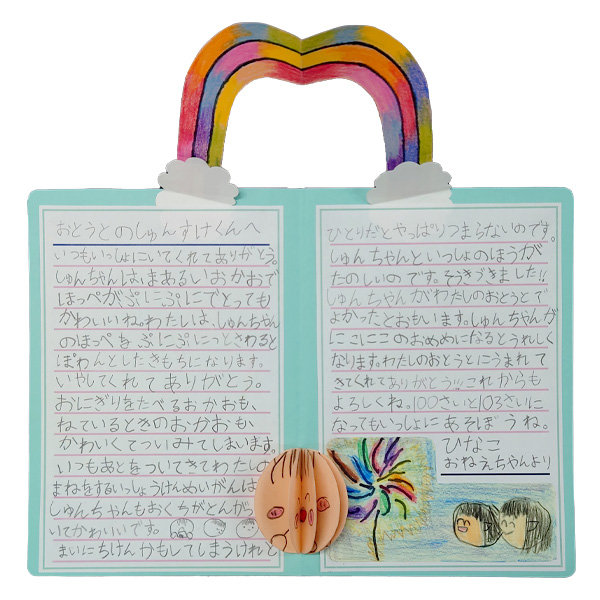 おとうとのしゅんすけくんへ
いつもいっしょにいてくれてありがとう。
しゅんちゃんは、まあるいおかおで
ほっぺがぷにぷにでとっても
かわいいね。わたしは、しゅんちゃん
のほっぺをぷにぷにっとさわると
ぽわんとしたきもちになります。
いやしてくれてありがとう。
おにぎりをたべてるおかおも、
ねているときのおかおも、
かわいくてついみてしまいます。
いつもあとをついてきてわたしの
まねをするいっしょうけんめいがんば
しゅんちゃんもおくちがとんが
いてかわいいです。
まいにちけんかもしてしまうけれど
ひとりだとやっぱりつまらないのです。
しゅんちゃんといっしょのほうが
たのしいのです。そうきづきました!!
しゅんちゃんがわたしのおとうとで
よかったとおもいます。しゅんちゃんが
にこにこのおめめになるとうれしく
なります。わたしのおとうとにうまれて
きてくれてありがとう!!これからも
よろしくね。100さいと103さいに
なってもいっしょにあそぼうね。
ひなこ
おねえちゃんより